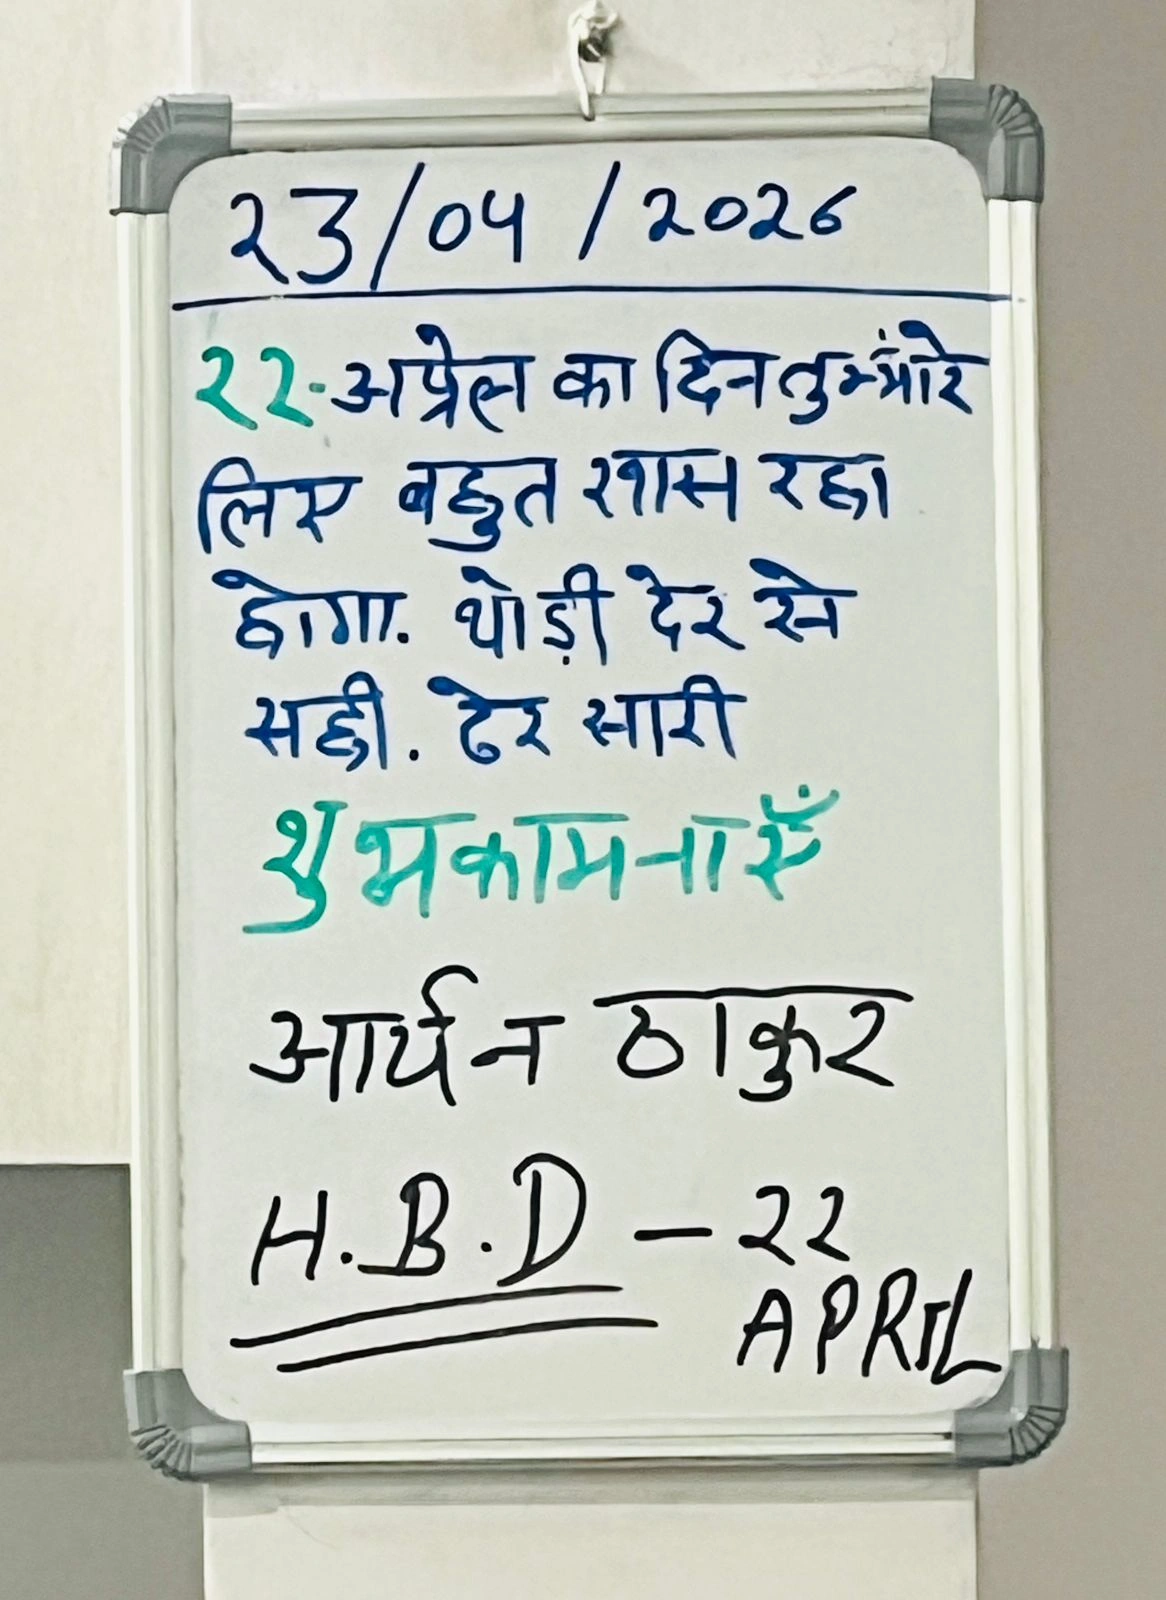 23/04/2026
22-अप्रेल का दिन तुम्हारे
लिए बहुत खास रहा
होगा. थोड़ी देर से
सही. ढेर सारी
शुभकामनाएँ
आर्यन ठाकुर
H.B.D – 22
APRIL